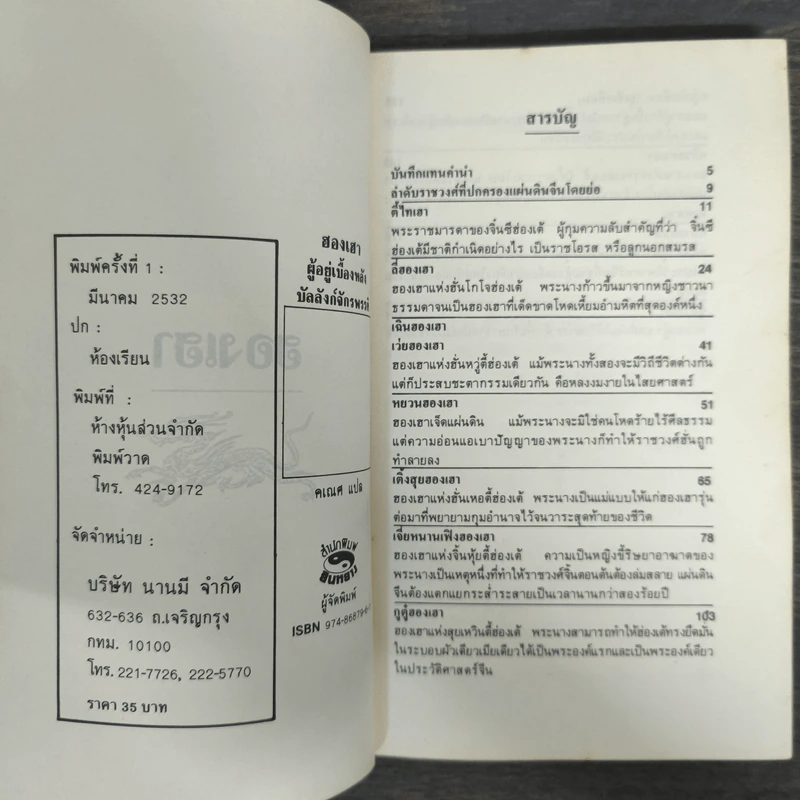 พิมพ์ครั้งที่ 1 :
มีนาคม 2532
ปก :
ห้องเรียน
พิมพ์ที่ :
ห้างหุ้นส่วนจำกัด
พิมพ์วาด
โทร. 424-9172
จัดจำหน่าย :
บริษัท นานมี จำกัด
632-636 ถ.เจริญกรุง
กทม. 10100
โทร. 221-7726, 222-5770
ราคา 35 บาท
ฮองเฮา
ผู้อยู่เบื้องหลัง
บัลลังก์จักรพรรดิ
คเณศ แปล
สำนักพิมพ์
ยินหยาง
ผู้จัดพิมพ์
ISBN 974-86879-
สารบัญ
บันทึกแทนคำนำ 5
ลำดับราชวงศ์ที่ปกครองแผ่นดินจีนโดยย่อ 9
ตี้ไทเฮา 11
พระราชมารดาของจิ๋นซีฮ่องเต้ ผู้กุมความลับสำคัญที่ว่า จิ๋นซี
ฮ่องเต้มีชาติกำเนิดอย่างไร เป็นราชโอรส หรือลูกนอกสมรส
ลี่ฮองเฮา 24
ฮองเฮาแห่งฮั่นโกโจฮ่องเต้ พระนางก้าวขึ้นมาจากหญิงชาวนา
ธรรมดาจนเป็นฮองเฮาที่เด็ดขาดโหดเหี้ยมอำมหิตที่สุดองค์หนึ่ง
เฉินฮองเฮา
เว่ยฮองเฮา 41
ฮองเฮาแห่งฮั่นหวู่ตี้ฮ่องเต้ แม้พระนางทั้งสองจะมีวิถีชีวิตต่างกัน
แต่ก็ประสบชะตากรรมเดียวกัน คือหลงงมงายในไสยศาสตร์
หยวนฮองเฮา 51
ฮองเฮาเจ็ดแผ่นดิน แม้พระนางจะมิใช่คนโหดร้ายไร้ศีลธรรม
แต่ความอ่อนแอเบาปัญญาของพระนางก็ทำให้ราชวงศ์ฮั่นถูก
ทำลายลง
เติ้งสุยฮองเฮา 65
ฮองเฮาแห่งฮั่นเหอตี้ฮ่องเต้ พระนางเป็นแม่แบบให้แก่ฮองเฮารุ่น
ต่อมาที่พยายามกุมอำนาจไว้จนวาระสุดท้ายของชีวิต
เจี่ยหนานเฟิงฮองเฮา 78
ฮองเฮาแห่งจิ้นหุ้ยตี้ฮ่องเต้ ความเป็นหญิงขี้ริษยาอาฆาตของ
พระนางเป็นเหตุหนึ่งที่ทำให้ราชวงศ์จิ้นตอนต้นต้องล่มสลาย แผ่นดิน
จีนต้องแตกแยกระส่ำระสายเป็นเวลานานกว่าสองร้อยปี
กูตู๋ฮองเฮา 103
ฮองเฮาแห่งสุยเหวินตี้ฮ่องเต้ พระนางสามารถทำให้ฮ่องเต้ทรงยึดมั่น
ในระบอบผัวเดียวเมียเดียวได้เป็นพระองค์แรกและเป็นพระองค์เดียว
ในประวัติศาสตร์จีน